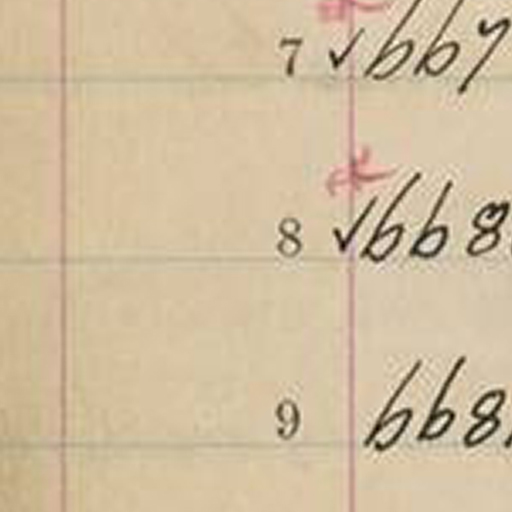 7 ✓667
8 ✓668
9 668